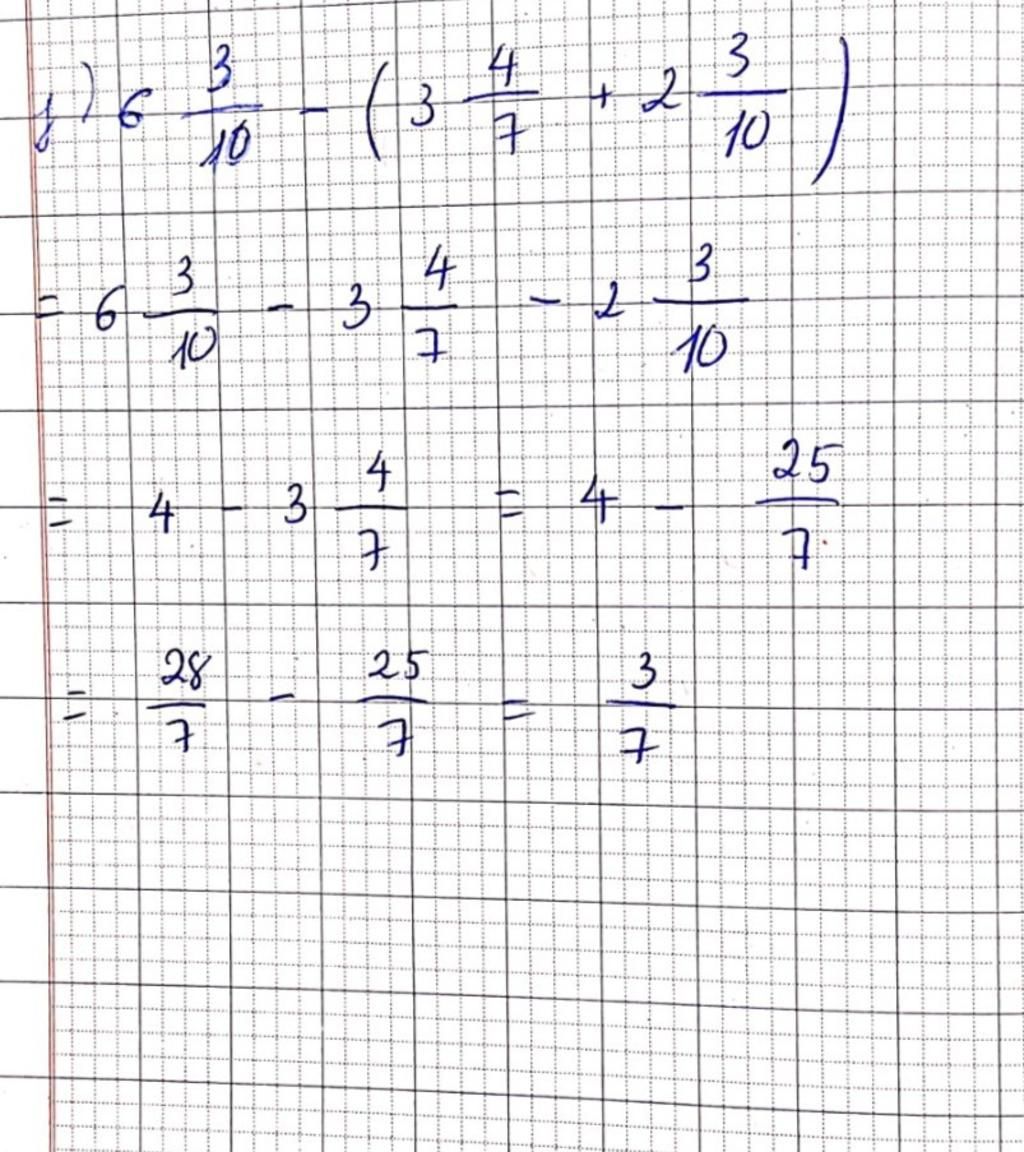 j) 6 3/10 - (3 4/7 + 2 3/10)
= 6 3/10 - 3 4/7 - 2 3/10
= 4 - 3 4/7 = 4 - 25/7
= 28/7 - 25/7 = 3/7